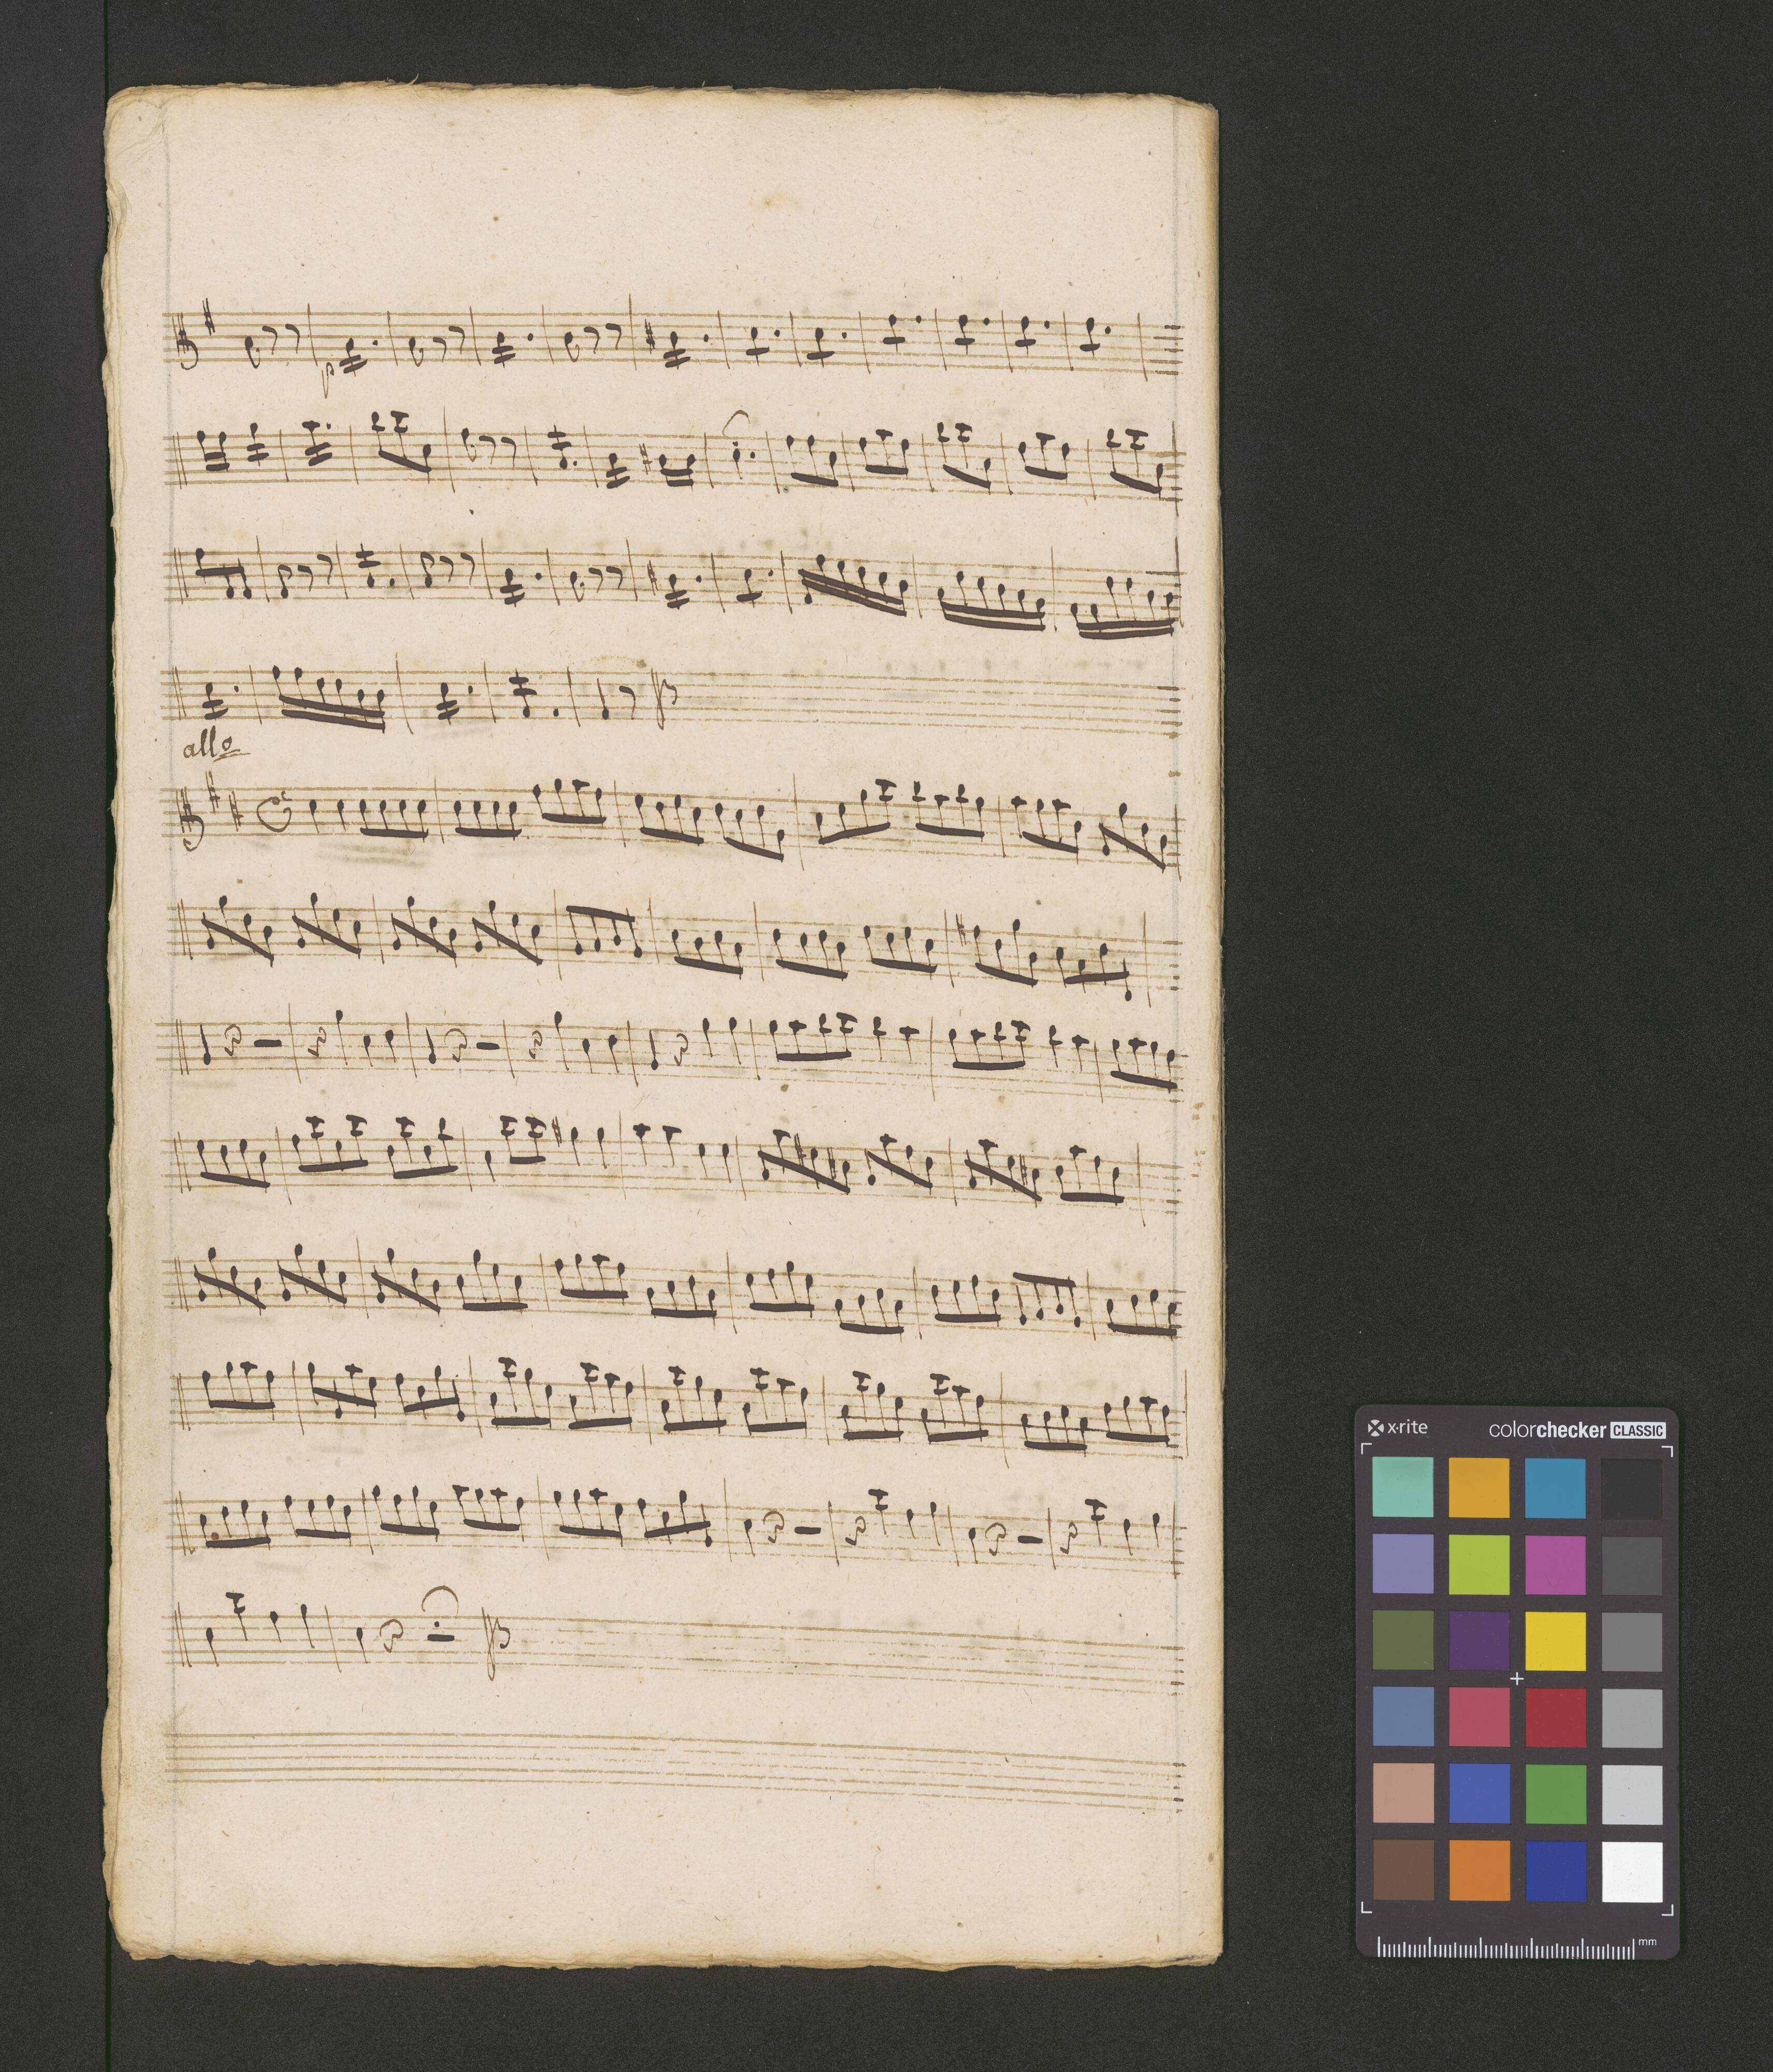 p
allo
x-rite colorchecker CLASSIC
mm